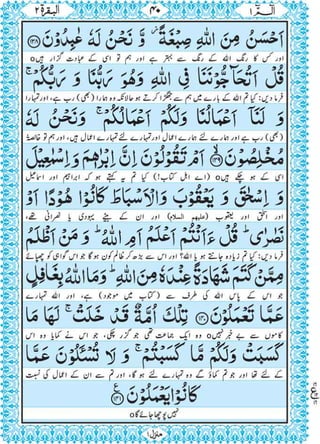 الٓـمّٓ ١
٤٠
البقرة ٢
اَحۡسَنُ مِنَ اللّٰهِ صِبۡغَةً ۫ وَّ نَحۡنُ لَهٗ عٰبِدُوۡنَ ﴿۱۳۸﴾
اور کس کا رنگ اللہ کے رنگ سے بہتر ہے اور ہم تو اسی کے عبادت گزار ہیں o
قُلۡ اَتُحَآجُّوۡنَنَا فِی اللّٰهِ وَهُوَ رَبُّنَا وَ رَبُّكُمۡ ۚ
فرما دیں: کیا تم اللہ کے بارے میں ہم سے جھگڑا کرتے ہو حالانکہ وہ ہمارا (بھی) رب ہے، اور تمہارا
وَ لَنَاۤ اَعۡمَالُنَا وَلَكُمۡ اَعۡمَالُكُمۡ ۚ وَنَحۡنُ لَهٗ
(بھی) رب ہے اور ہمارے لئے ہمارے اعمال اور تمہارے لئے تمہارے اعمال ہیں، اور ہم تو خالصۃً
مُخۡلِصُوۡنَ ﴿۱۳۹﴾ اَمۡ تَقُوۡلُوۡنَ اِنَّ اِبۡرٰهٖمَ وَ اِسۡمٰعِيۡلَ
اسی کے ہو چکے ہیں o (اے اہلِ کتاب!) کیا تم یہ کہتے ہو کہ ابراہیم اور اسماعیل
وَ اِسۡحٰقَ وَ يَعۡقُوۡبَ وَالۡاَسۡبَاطَ كَانُوۡا هُوۡدًا اَوۡ
اور اسحٰق اور یعقوب (علیھم السلام) اور ان کے بیٹے یہودی یا نصرانی تھے،
نَصٰرٰى ؕ قُلۡ ءَاَنۡتُمۡ اَعۡلَمُ اَمِ اللّٰهُ ؕ وَ مَنۡ اَظۡلَمُ
فرما دیں: کیا تم زیادہ جانتے ہو یا اللہ؟ اور اس سے بڑھ کر ظالم کون ہوگا جو اس گواہی کو چھپائے
مِمَّنۡ كَتَمَ شَهَادَةً عِنۡدَهٗ مِنَ اللّٰهِ ؕ وَمَا اللّٰهُ بِغَافِلٍ
جو اس کے پاس اللہ کی طرف سے (کتاب میں موجود) ہے، اور اللہ تمہارے
عَمَّا تَعۡمَلُوۡنَ ﴿۱۴۰﴾ تِلۡكَ اُمَّةٌ قَدۡ خَلَتۡ ۚ لَهَا مَا
کاموں سے بے خبر نہیں o وہ ایک جماعت تھی جو گزر چکی، جو اس نے کمایا وہ اس
كَسَبَتۡ وَلَكُمۡ مَّا كَسَبۡتُمۡ ۚ وَ لَا تُسۡـَٔلُوۡنَ عَمَّا
کے لئے تھا اور جو تم کماؤ گے وہ تمہارے لئے ہوگا، اور تم سے ان کے اعمال کی نسبت
كَانُوۡا يَعۡمَلُوۡنَ ﴿۱۴۱﴾
نہیں پوچھا جائے گا o
منزل ١